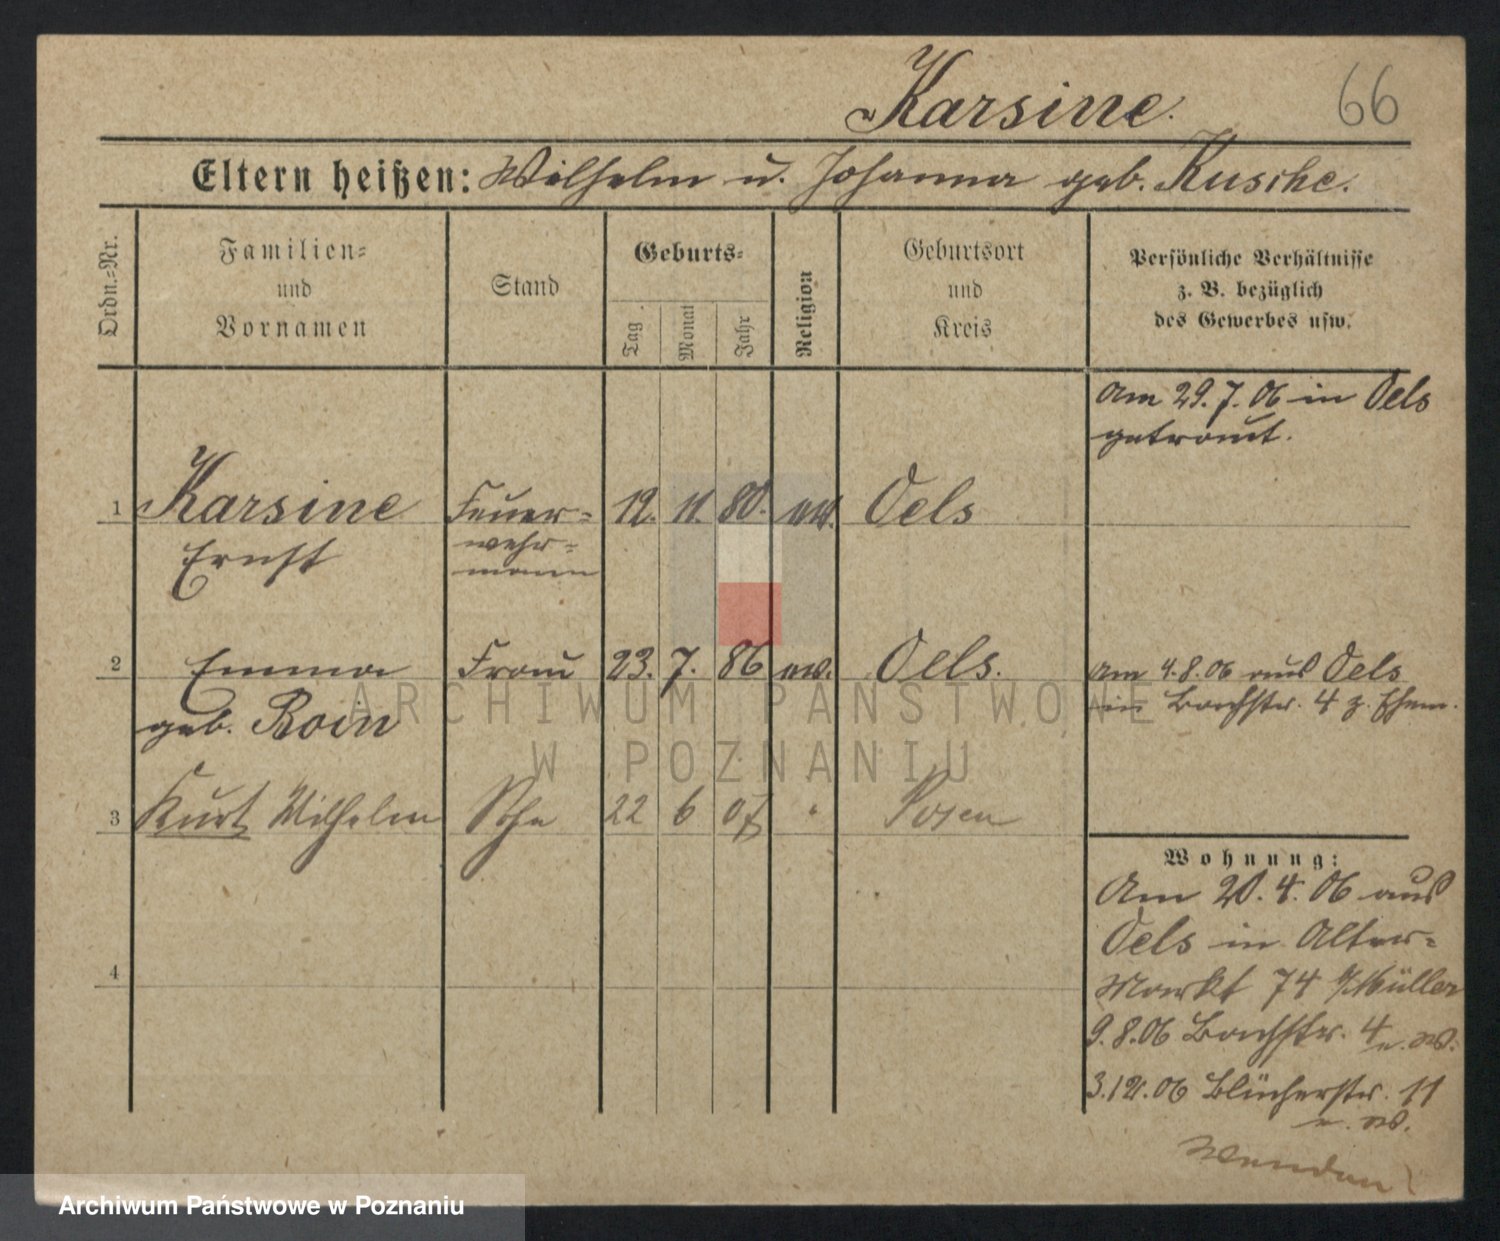 Karsine.
66
Eltern heißen: Wilhelm u. Johanna geb. Kusche.
Ordn.-Nr.
Familien-
und
Vornamen
Stand
Geburts-
Tag.
Monat
Jahr
Religion
Geburtsort
und
Kreis
Persönliche Verhältnisse
z. B. bezüglich
des Gewerbes usw.
Am 29. 7. 06 in Oels
getraut.
1 Karsine Feuer- 12. 11. 80. ev. Oels
Ernst wehr-
mann
2 Emma Frau 23. 7. 86 ev. Oels.
geb. Roin
Am 4. 8. 06 aus Oels
in Bachstr. 4 z. Ehem.
3 Kurt Wilhelm Sohn 22 6 07 " Posen
4
Wohnung:
Am 20. 4. 06 aus
Oels in Alter-
Markt 74 b/Müller
9. 8. 06 Bachstr. 4 e. W.
3. 12. 06 Blücherstr. 11
e. W.
Wenden!
ARCHIWUM PAŃSTWOWE
W POZNANIU
Archiwum Państwowe w Poznaniu